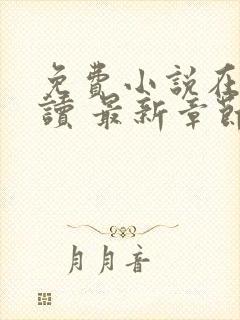 免費小說在
讀 最新章節
月月音